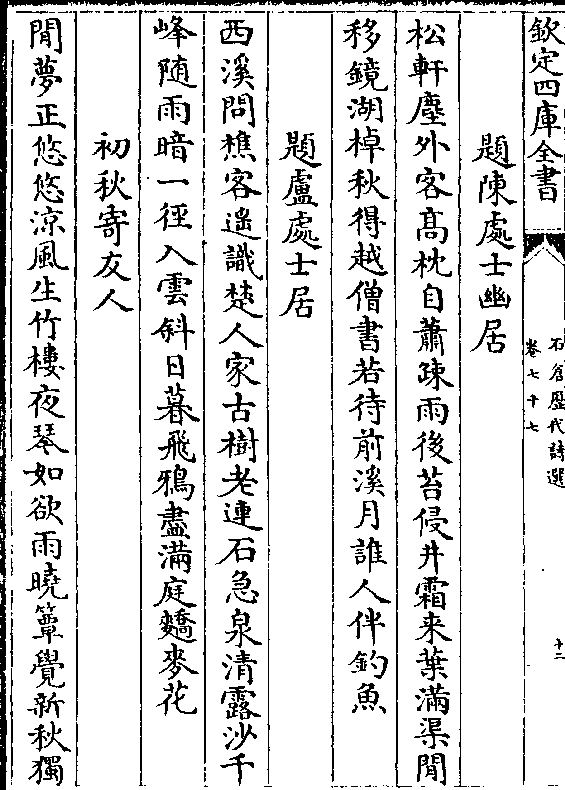 欽定四庫全書
石倉歷代詩選
卷七十七
十二
題陳處士幽居
松軒塵外客髙枕自蕭疎雨後苔侵井霜来葉滿渠閒
移鏡湖棹秋得越僧書若待前溪月誰人伴釣魚
題盧處士居
西溪問樵客遙識楚人家古樹老連石急泉清露沙千
峰随雨暗一徑入雲斜日暮飛鴉盡滿庭蕎麥花
初秋寄友人
閒夢正悠悠涼風生竹樓夜琴如欲雨曉簟覺新秋獨